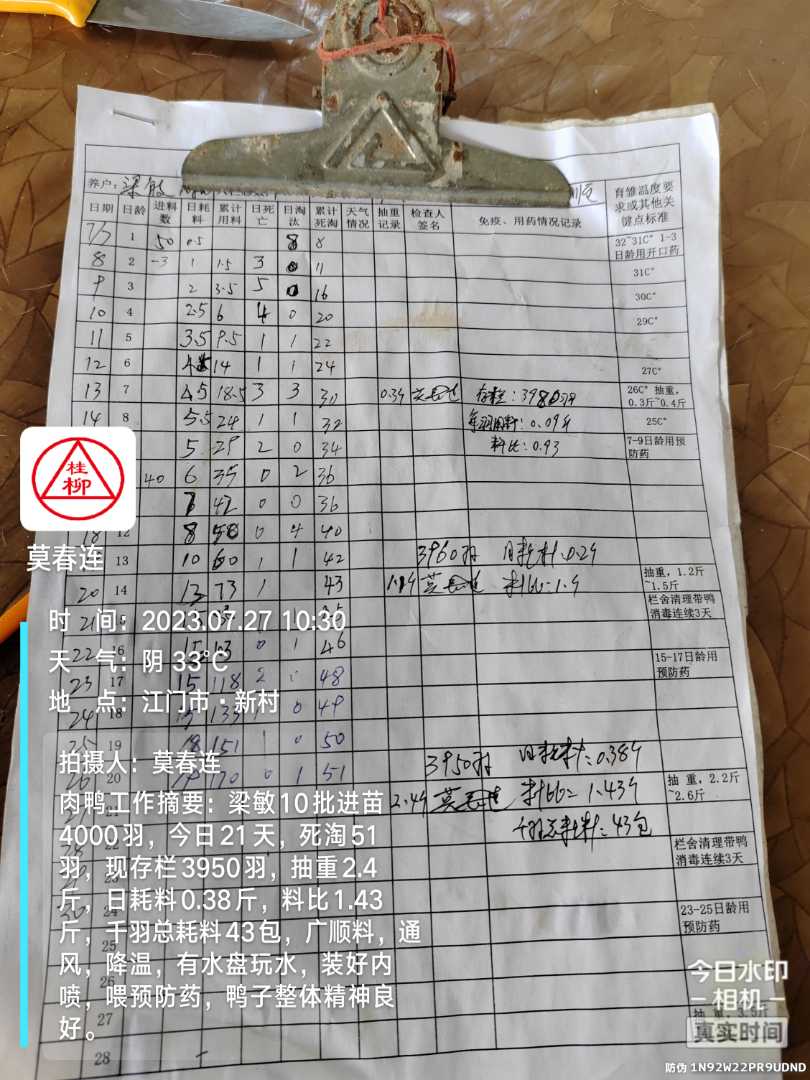 养户：梁敏
日期 日龄 进料数 日耗料 累计用料 日死亡 日淘汰 累计死淘 天气情况 抽重记录 检查人签名 免疫、用药情况记录 育雏温度要求或其他关键点标准
7/7 1 50 0.5 8 8 32~31C° 1-3日龄用开口药
8 2 -3 1 1.5 3 0 11 31C°
9 3 2 3.5 5 0 16 30C°
10 4 2.5 6 4 0 20 29C°
11 5 3.5 9.5 1 1 22
12 6 14 1 1 24 27C°
13 7 4.5 18.5 3 3 30 0.39 存栏：3980羽 26C° 抽重，0.3斤~0.4斤
14 8 5.5 24 1 1 32 0.09斤 25C°
5 29 2 0 34 料比：0.93 7-9日龄用预防药
40 6 35 0 2 36
7 42 0 0 36
18 12 8 50 0 4 40
13 10 60 1 1 42 3960羽 日耗料0.29
20 14 13 73 1 43 莫春连 料比：1.9 抽重，1.2斤~1.5斤
21 15 栏舍清理带鸭消毒连续3天
22 16 15 0 1 46
23 17 15 118 2 48 15-17日龄用预防药
24 18 133 0 49
25 19 18 151 1 0 50
26 20 170 0 1 51 3950羽 日耗料：0.38斤
2.4斤 莫春连 料比：1.43斤 抽重，2.2斤~2.6斤
千羽总耗料：43包
栏舍清理带鸭消毒连续3天
24 23-25日龄用预防药
25
26
27 抽重，3.5斤
28
桂柳
莫春连
时 间：2023.07.27 10:30
天 气：阴 33℃
地 点：江门市·新村
拍摄人：莫春连
肉鸭工作摘要：梁敏10批进苗
4000羽，今日21天，死淘51
羽，现存栏3950羽，抽重2.4
斤，日耗料0.38斤，料比1.43
斤，千羽总耗料43包，广顺料，通
风，降温，有水盘玩水，装好内
喷，喂预防药，鸭子整体精神良
好。
今日水印
相机
真实时间
防伪 1N92W22PR9UDND